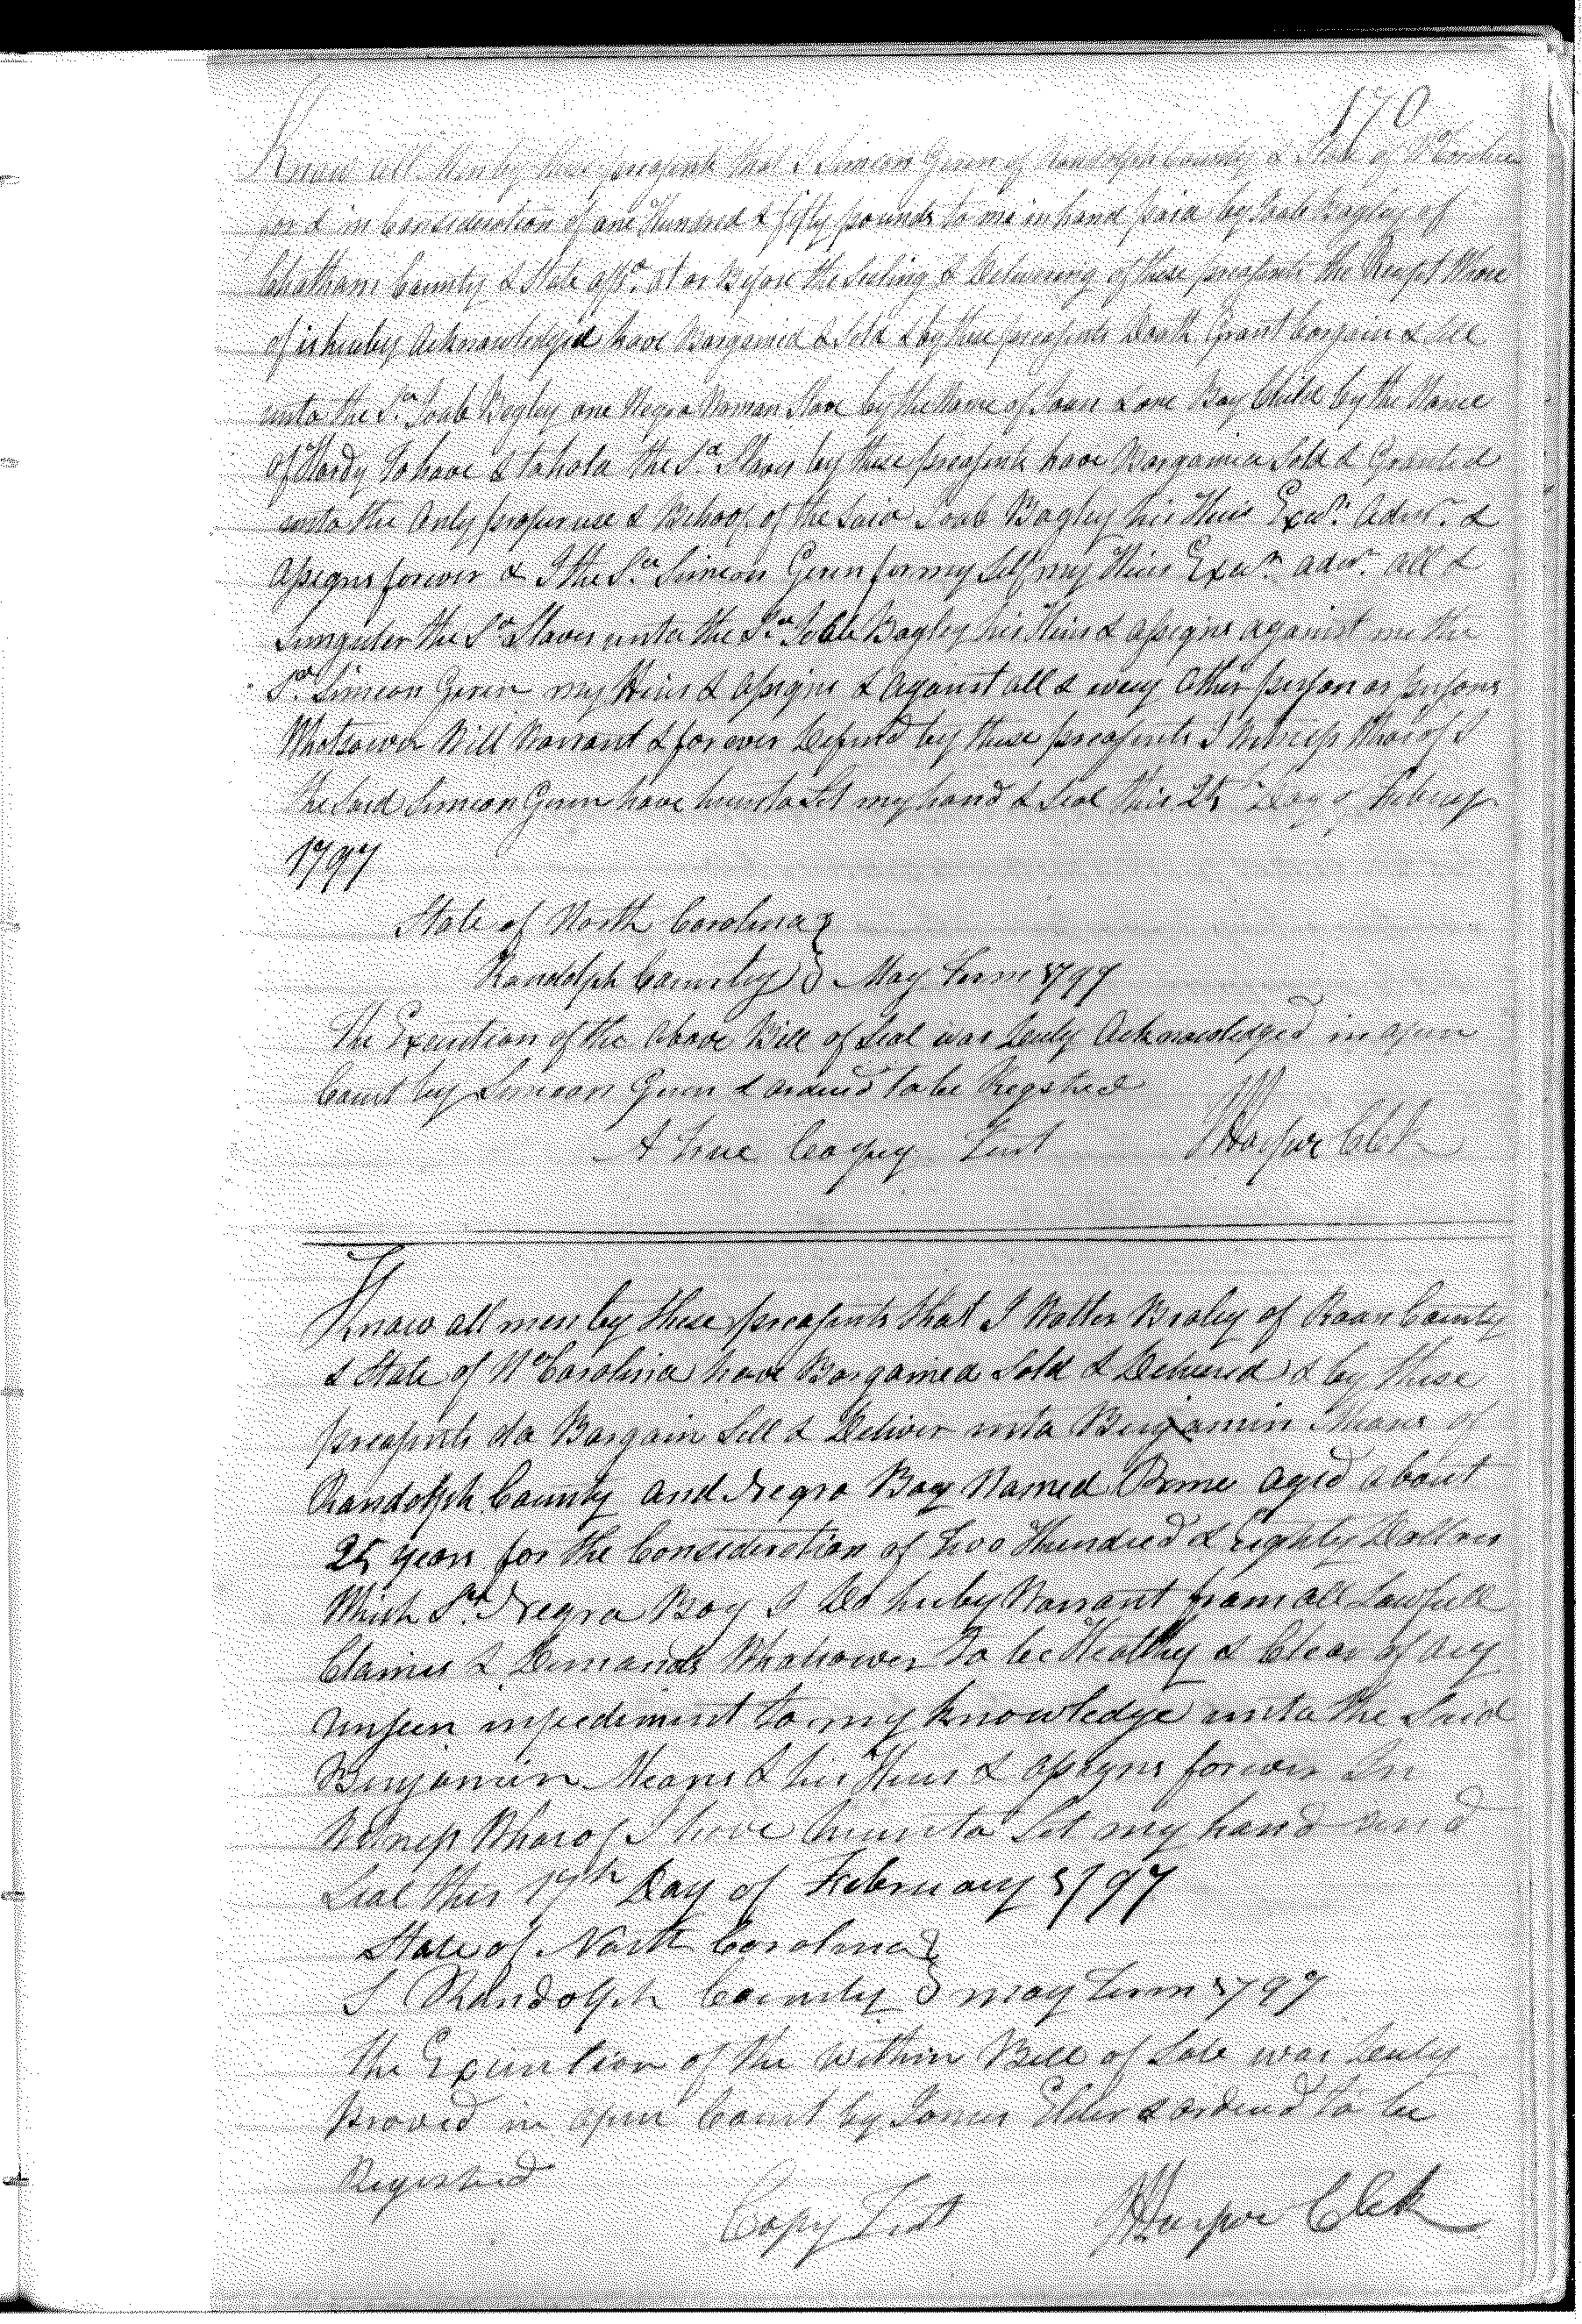 170
Know all Men by these preasents that I Simeon Geren of Randolph County & State of No Carolina
for & in Consideration of one Hundred & fifty pounds to me in hand paid by Joab Bagley of
Chatham County & State afsd. at or Before the Sealing & Delivering of these preasents the Receipt Where
of is hereby Acknowledged have Bargained & Sold & by these preasents Doath Grant bargain & sell
unto the Sd Joab Bagley one Negro Woman Slave by the Name of & one Boy Child by the Name
of Hardy To have & to hold the Sd Slaves by these preasents have Bargained Sold & Granted
unto the Only proper use & Behoof of the said Joab Bagley his Heirs Exers. Admr. &
Assigns forever & I the Sd Simeon Geren for my Self my Heirs Exers. admr. all &
Singuler the Sd Slaves unto the Sd Joab Bagley his Heirs & assigns against me the
Sd Simeon Geren my Heirs & Assigns & Against all & every Other person or persons
Whatsoever Will Warrant & forever Defend by these preasents I Witness Whareof I
the Said Simeon Geren have hereunto Set my hand & Seal this 25th Day of
1797
State of North Carolina }
Randolph County } May Term 1797
The Execution of the Above Bill of Seal was Duly Acknowledged in open
Court by Simeon Geren & ordered to be Regstred
A True Coppy Test Harper Clk
Know all men by these preasents that I Walter Braley of Roan County
& State of No Carolina have Bargained Sold & Delivered & by these
preasents do Bargain Sell & Deliver unto Benjamin Means of
Randolph County and Negro Boy Named Prime aged about
25 years for the Consideration of Two Hundred & Eighty Dollars
Which Sd Negro Boy I Do hereby Warrant from all Lawfull
Claimes & Demands Whatsoever To be Healthy & Clear of any
unseen impediment to my knowledge unto the Said
Benjamin Means & his Heirs & assigns forever In
Witness Whareof I have hereunto Set my hand and
Seal this 17th Day of February 1797
State of North Carolina }
Randolph County } may Term 1797
the Execution of the within Bill of Sale was Duly
Proved in open Court by James Elder & ordered to be
Registred
Copy Test Harper Clek